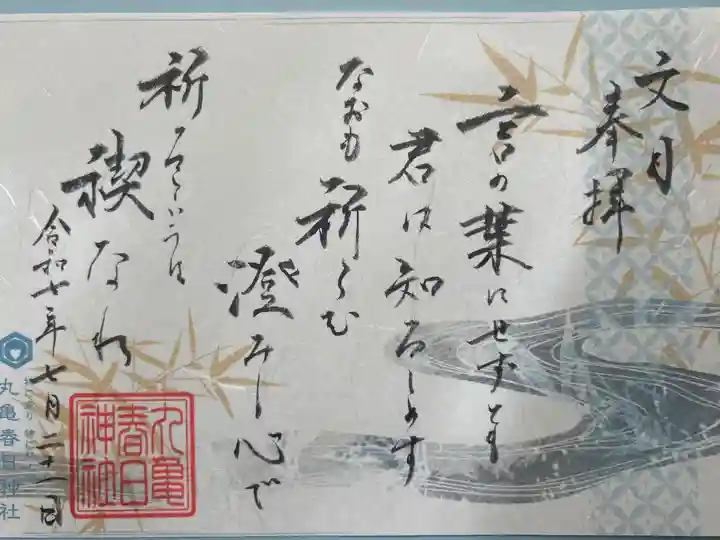 文月
奉拝
言の葉にせずとも
君は知ろしめす
なおも祈らむ
澄みし心で
祈りというは
禊なれ
令和七年七月二十一日
丸亀春日神社
丸亀春日神社